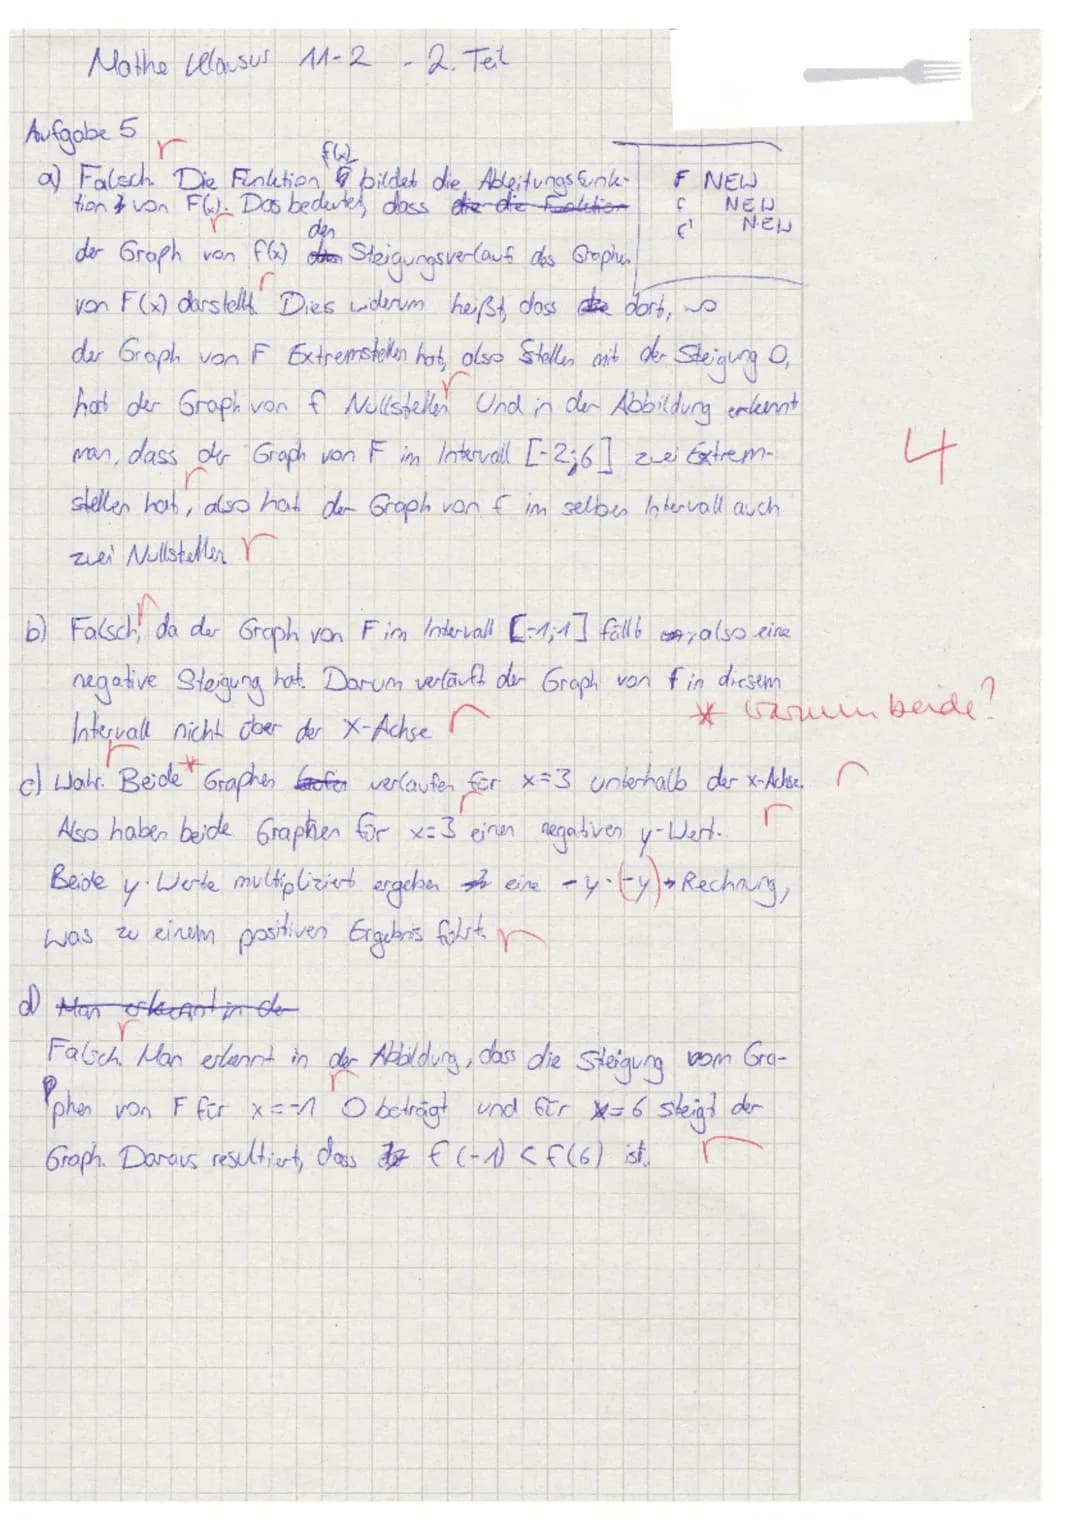 Mathe Klausur 11-2 - 2. Teil
Aufgabe 5
f(x)
a) Falsch. Die Funktion bildet die Ableitungsfunk-
tion von F(x). Das bedeutet, dass die die Funktion
den
der Graph von f(x) Steigungsverlauf des Graphen
von F(x) darstellt. Dies widerum heißt, dass dort, wo
der Graph von F Extremstellen hat, also Stellen mit der Steigung 0,
hat der Graph von f Nullstellen. Und in der Abbildung erkennt
man, dass der Graph von F im Intervall [-2;6] zwei Extrem-
stellen hat, also hat der Graph von f im selben Intervall auch
zwei Nullstellen
F NEW
f NEW
f' NEW
4
b) Falsch, da der Graph von F im Intervall [-1;1] fällt, also eine
negative Steigung hat. Darum verläuft der Graph von f in diesem
Intervall nicht über der X-Achse
* warum beide?
c) Wahr. Beide* Graphen verlaufen für x=3 unterhalb der x-Achse.
Also haben beide Graphen für x=3 einen negativen y-Wert.
Beide y-Werte multipliziert ergeben eine -y·(-y)-Rechnung,
was zu einem positiven Ergebnis führt.
d) Man erkennt in der
Falsch. Man erkennt in der Abbildung, dass die Steigung vom Gra-
phen von F für x=-1 0 beträgt und für x=6 steigt der
Graph. Daraus resultiert, dass f(-1) < f(6) ist.